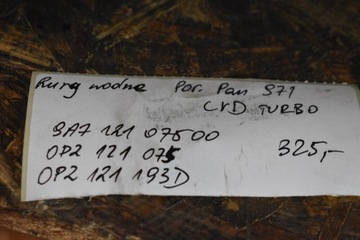 Rury wodne Por. Pan 971
CVD TURBO
9A7 121 075 00
OP2 121 075
OP2 121 193D
325,-